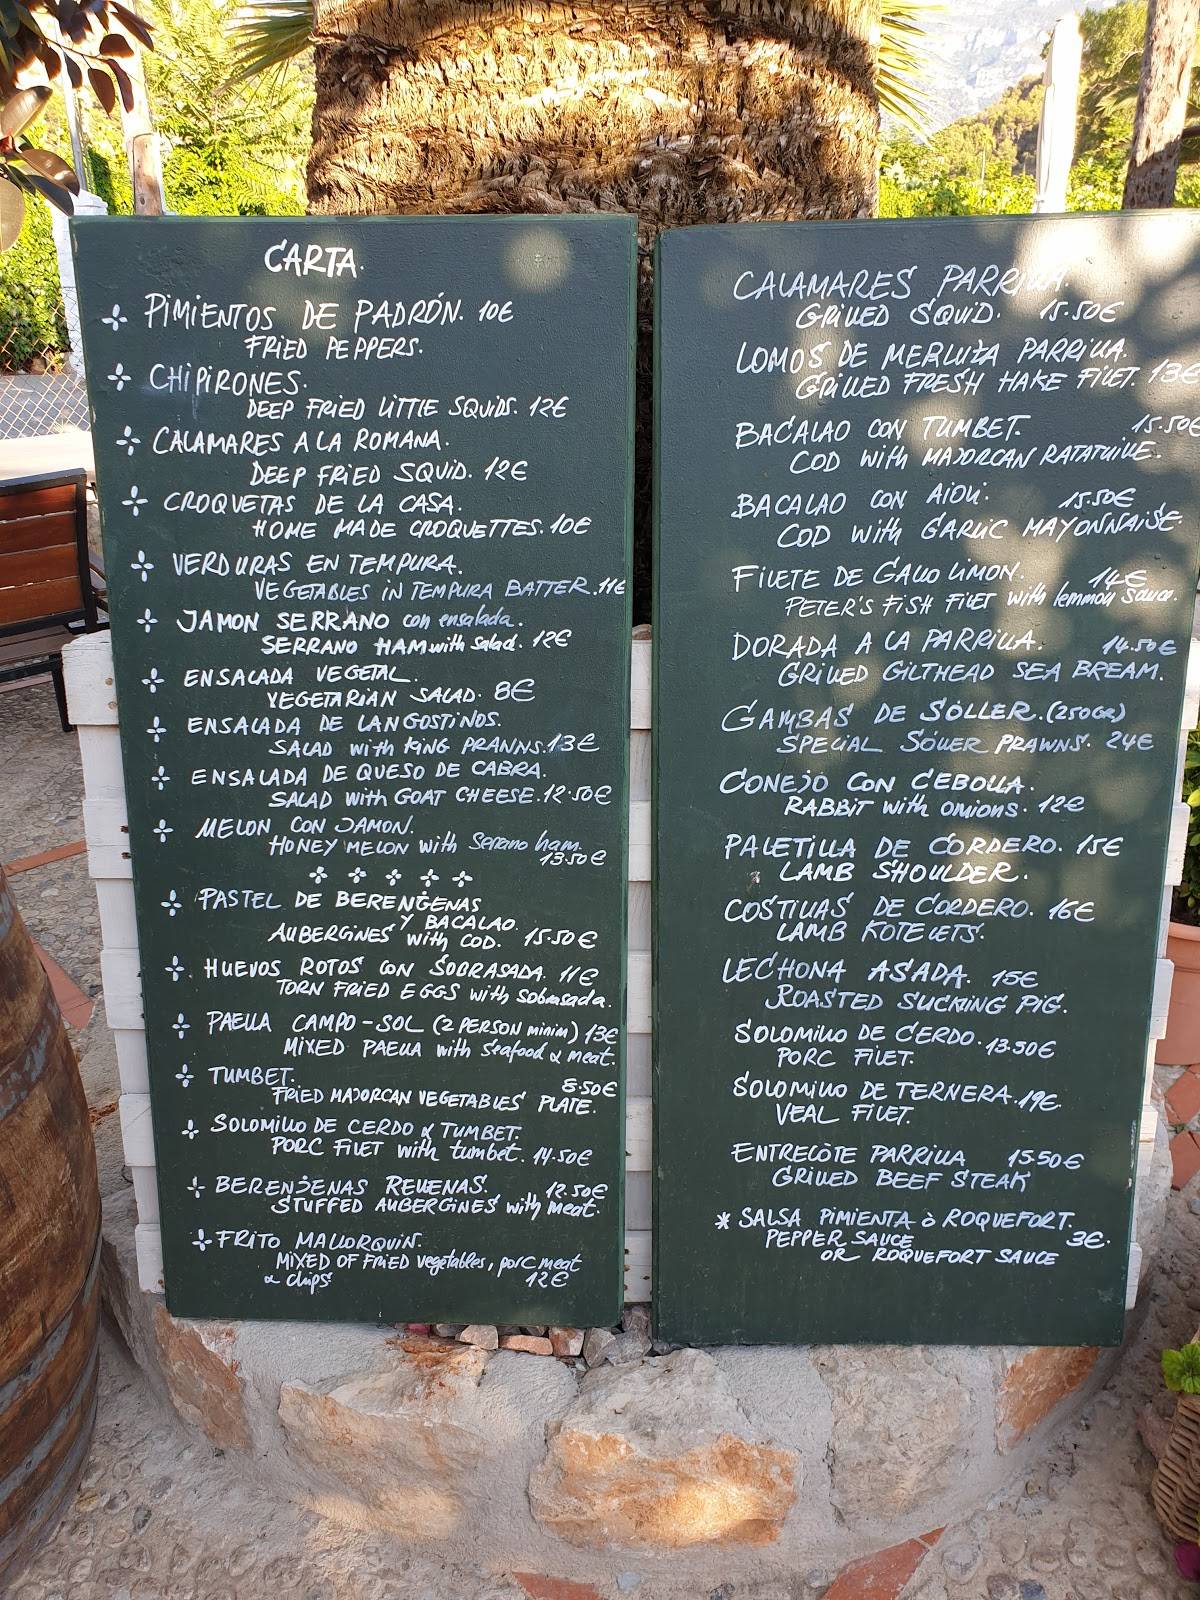 CARTA.
PIMIENTOS DE PADRÓN. 10€
FRIED PEPPERS.
CHIPIRONES.
DEEP FRIED LITTLE SQUIDS. 12€
CALAMARES A LA ROMANA.
DEEP FRIED SQUID. 12€
CROQUETAS DE LA CASA.
HOME MADE CROQUETTES. 10€
VERDURAS EN TEMPURA.
VEGETABLES IN TEMPURA BATTER. 11€
JAMON SERRANO con ensalada.
SERRANO HAM with Salad. 12€
ENSALADA VEGETAL.
VEGETARIAN SALAD. 8€
ENSALADA DE LANGOSTINOS.
SALAD with KING PRANNS. 13€
ENSALADA DE QUESO DE CABRA.
SALAD with GOAT CHEESE. 12.50€
MELON CON JAMON.
HONEY MELON with Serrano ham.
13.50€
PASTEL DE BERENGENAS
Y BACALAO.
AUBERGINES with COD. 15.50€
HUEVOS ROTOS CON SOBRASADA. 11€
TORN FRIED EGGS with Sobrasada.
PAELLA CAMPO-SOL (2 PERSON minim) 13€
MIXED PAELLA with Seafood & meat.
TUMBET. 8.50€
FRIED MAJORCAN VEGETABLES PLATE.
SOLOMILLO DE CERDO & TUMBET.
PORC FILET with tumbet. 14.50€
BERENJENAS RELLENAS. 12.50€
STUFFED AUBERGINES with meat.
FRITO MALLORQUIN.
MIXED OF FRIED vegetables, porc meat
& chips 12€
CALAMARES PARRILLA.
GRILLED SQUID. 15.50€
LOMOS DE MERLUZA PARRILLA.
GRILLED FRESH HAKE FILET. 13€
BACALAO CON TUMBET. 15.50€
COD with MAJORCAN RATATUILLE.
BACALAO CON AIOLI. 15.50€
COD with GARLIC MAYONNAISE.
FILETE DE GALLO LIMON. 14€
PETER'S FISH FILET with lemmon sauce.
DORADA A LA PARRILLA. 14.50€
GRILLED GILTHEAD SEA BREAM.
GAMBAS DE SÓLLER. (250GR)
SPECIAL SÓLLER PRAWNS. 24€
CONEJO CON CEBOLLA.
RABBIT with onions. 12€
PALETILLA DE CORDERO. 15€
LAMB SHOULDER.
COSTILLAS DE CORDERO. 16€
LAMB KOTELETS.
LECHONA ASADA. 15€
ROASTED SUCKING PIG.
SOLOMILLO DE CERDO. 13.50€
PORC FILET.
SOLOMILLO DE TERNERA. 19€
VEAL FILET.
ENTRECÔTE PARRILLA 15.50€
GRILLED BEEF STEAK
* SALSA PIMIENTA ò ROQUEFORT.
PEPPER SAUCE 3€.
OR ROQUEFORT SAUCE